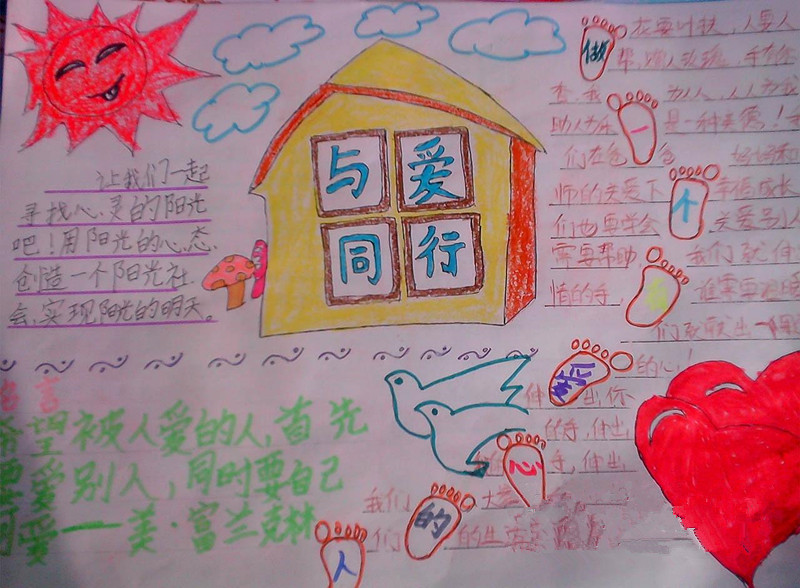 与爱
同行
让我们一起
寻找心灵的阳光
吧！用阳光的心态，
创造一个阳光社
会，实现阳光的明天。
言
希望被人爱的人，首先
要爱别人，同时要自己
可爱——美·富兰克林
做
一
个
爱
心
的
人
花要叶扶，人要人
帮，赠人玫瑰，手有余
香，我为人人，人人为我
助人为乐是一种美德！
们在爸爸妈妈和
师的关爱下幸福成长
们也要学会关爱别人
需要帮助，我们就伸
情的手，谁需要温暖
们就献出一颗
的心！
伸出你
的手，伸出
手，伸出
我们
们的生